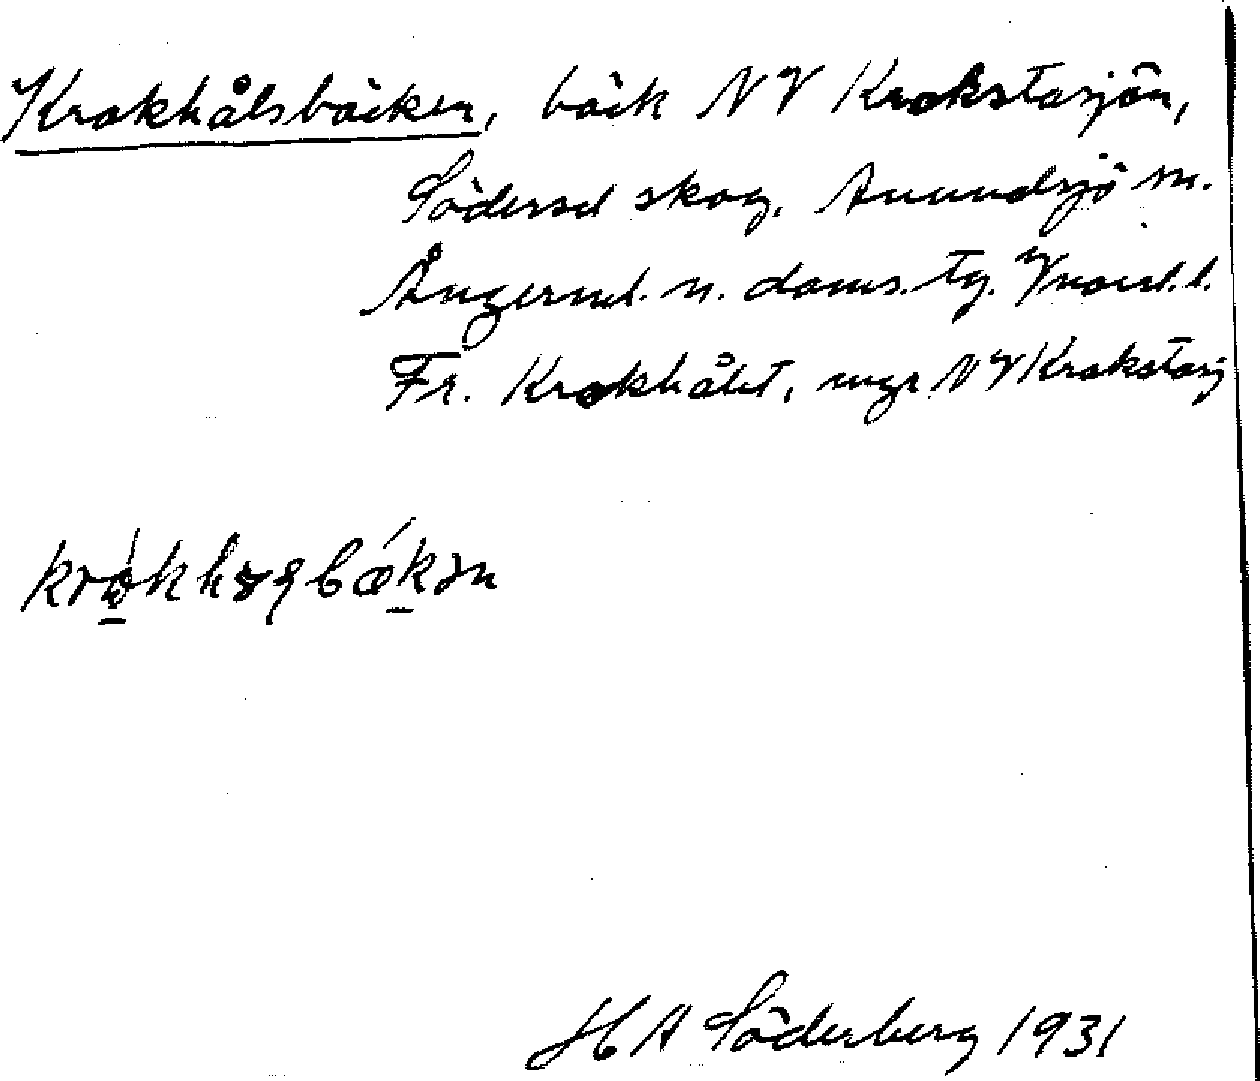 Krokhålsbäcken, bäck NV Krokstasjön,
Södersel skog, Anundsjö sn.
Ångerml. n. doms. tg. Vnorrl. l.
Fr. Krokhålet, myr NV Krokstasj
H A Söderberg 1931